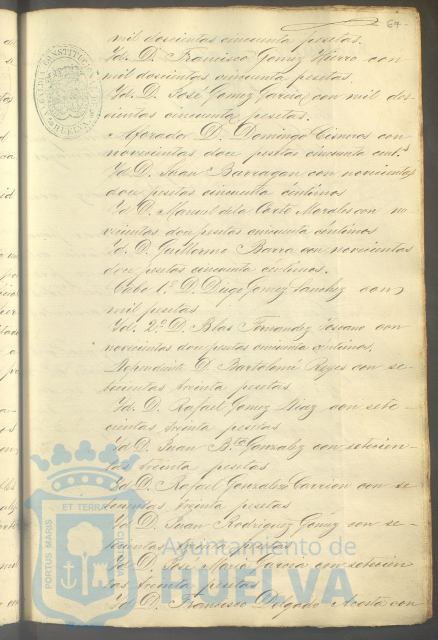 64
mil doscientas cincuenta pesetas.
Id. D. Francisco Gomez Hierro con
mil doscientas cincuenta pesetas.
Id. D. José Gomez Garcia con mil dos-
cientas cincuenta pesetas.
Aforador D. Domingo Cisneros con
novecientas doce pesetas cincuenta cent.s
Id D. Juan Barragan con novecientas
doce pesetas cincuenta céntimos
Id D. Manuel de la Corte Morales con no-
vecientas doce pesetas cincuenta céntimos
Id. D. Guillermo Barra con novecientas
doce pesetas cincuenta céntimos.
Cabo 1.º D. Diego Gomez Sanchez con
mil pesetas
Id. 2.º D. Blas Fernandez con
novecientas doce pesetas cincuenta céntimos.
Dependiente D. Bartolomé Reyes con se-
tecientas treinta pesetas
Id. D. Rafael Gomez Diaz con sete-
cientas treinta pesetas
Id D. Juan B.ta Gonzalez con setecien-
tas treinta pesetas
Id D. Rafael Gonzalez Carrion con se-
tecientas treinta pesetas
Id D. Juan Rodriguez Gomez con se-
tecientas treinta pesetas
Id D. José Maria Garcia con setecien-
tas treinta pesetas
Id D. Francisco Delgado Acosta con
ALCALDIA CONSTITUCIONAL DE HUELVA
PORTUS MARIS ET TERRAE CUSTODIA
Ayuntamiento de
HUELVA